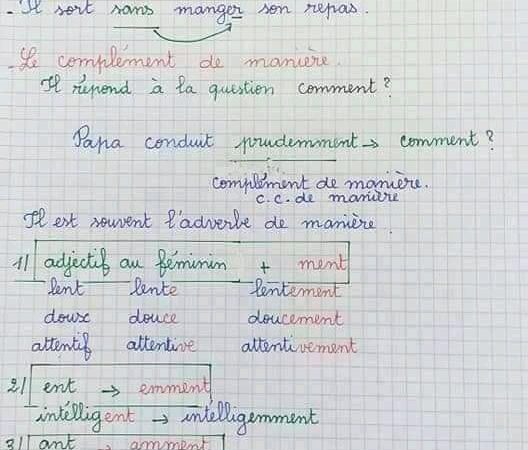 - Il sort sans manger son repas.
- Le complément de manière.
Il répond à la question comment?
Papa conduit prudemment → comment?
complément de manière.
c.c. de manière
Il est souvent l'adverbe de manière.
1/ adjectif au féminin + ment
lent lente lentement
doux douce doucement
attentif attentive attentivement
2/ ent → emment
intélligent → intélligemment
3/ ant → amment